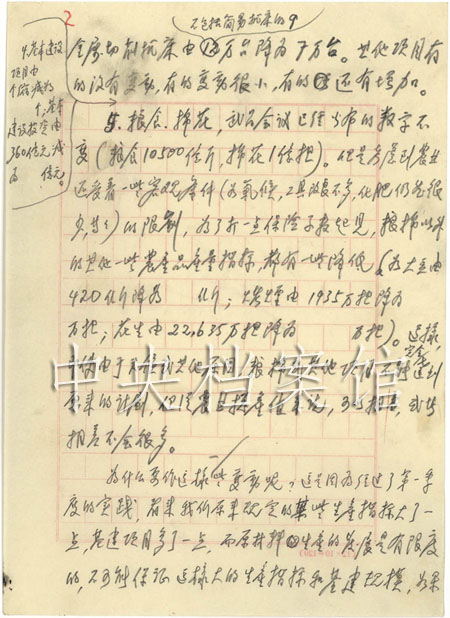 2
不包括简易机床的
金属切削机床由13万台降为7万台。其他项目有
的没有变动,有的变动很小,有的还有增加。
4.基本建设
项目由
个缩减为
个,基本
建设投资由
360亿元减
为 亿元。
5.粮食、棉花,武昌会议已经公布的数字不
变(粮食10500亿斤,棉花1亿担)。但是考虑到农业
还受着一些客观条件(如气候,工具改良不多,化肥仍然很
少,等等)的限制,为了打一点保险系数起见,粮棉以外
的其他一些农产品产量指标,都有一些降低(如大豆由
420亿斤降为 亿斤;烤烟由1935万担降为
万担;花生由22,635万担降为 万担)。这样,
原来的计划,但是
相差不会很多。
为什么要作这样一些变动呢?这是因为经过了第一季
度的实践,看来我们原来规定的某些生产指标大了一
点,基建项目多了一点,而原材料生产的发展是有限度
的,不可能保证这样大的生产指标和基建规模,如果
中央档案馆